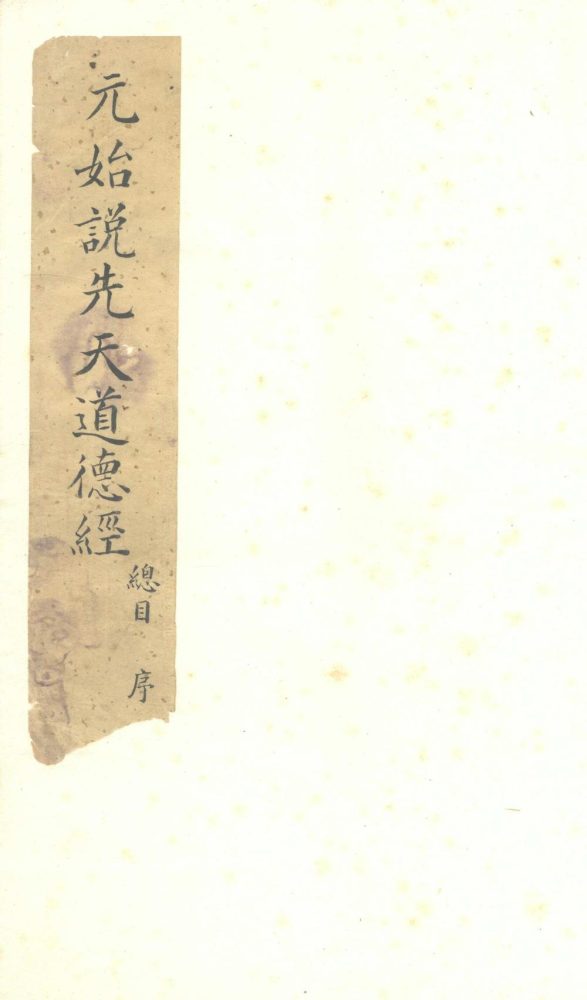 元始説先天道德經
總目
序